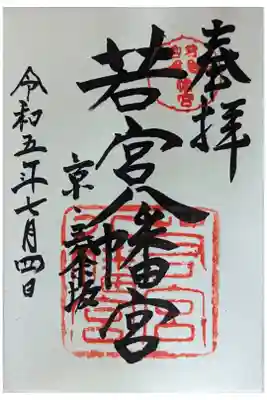 奉拝
若宮八幡宮
京、五条坂
令和五年七月四日